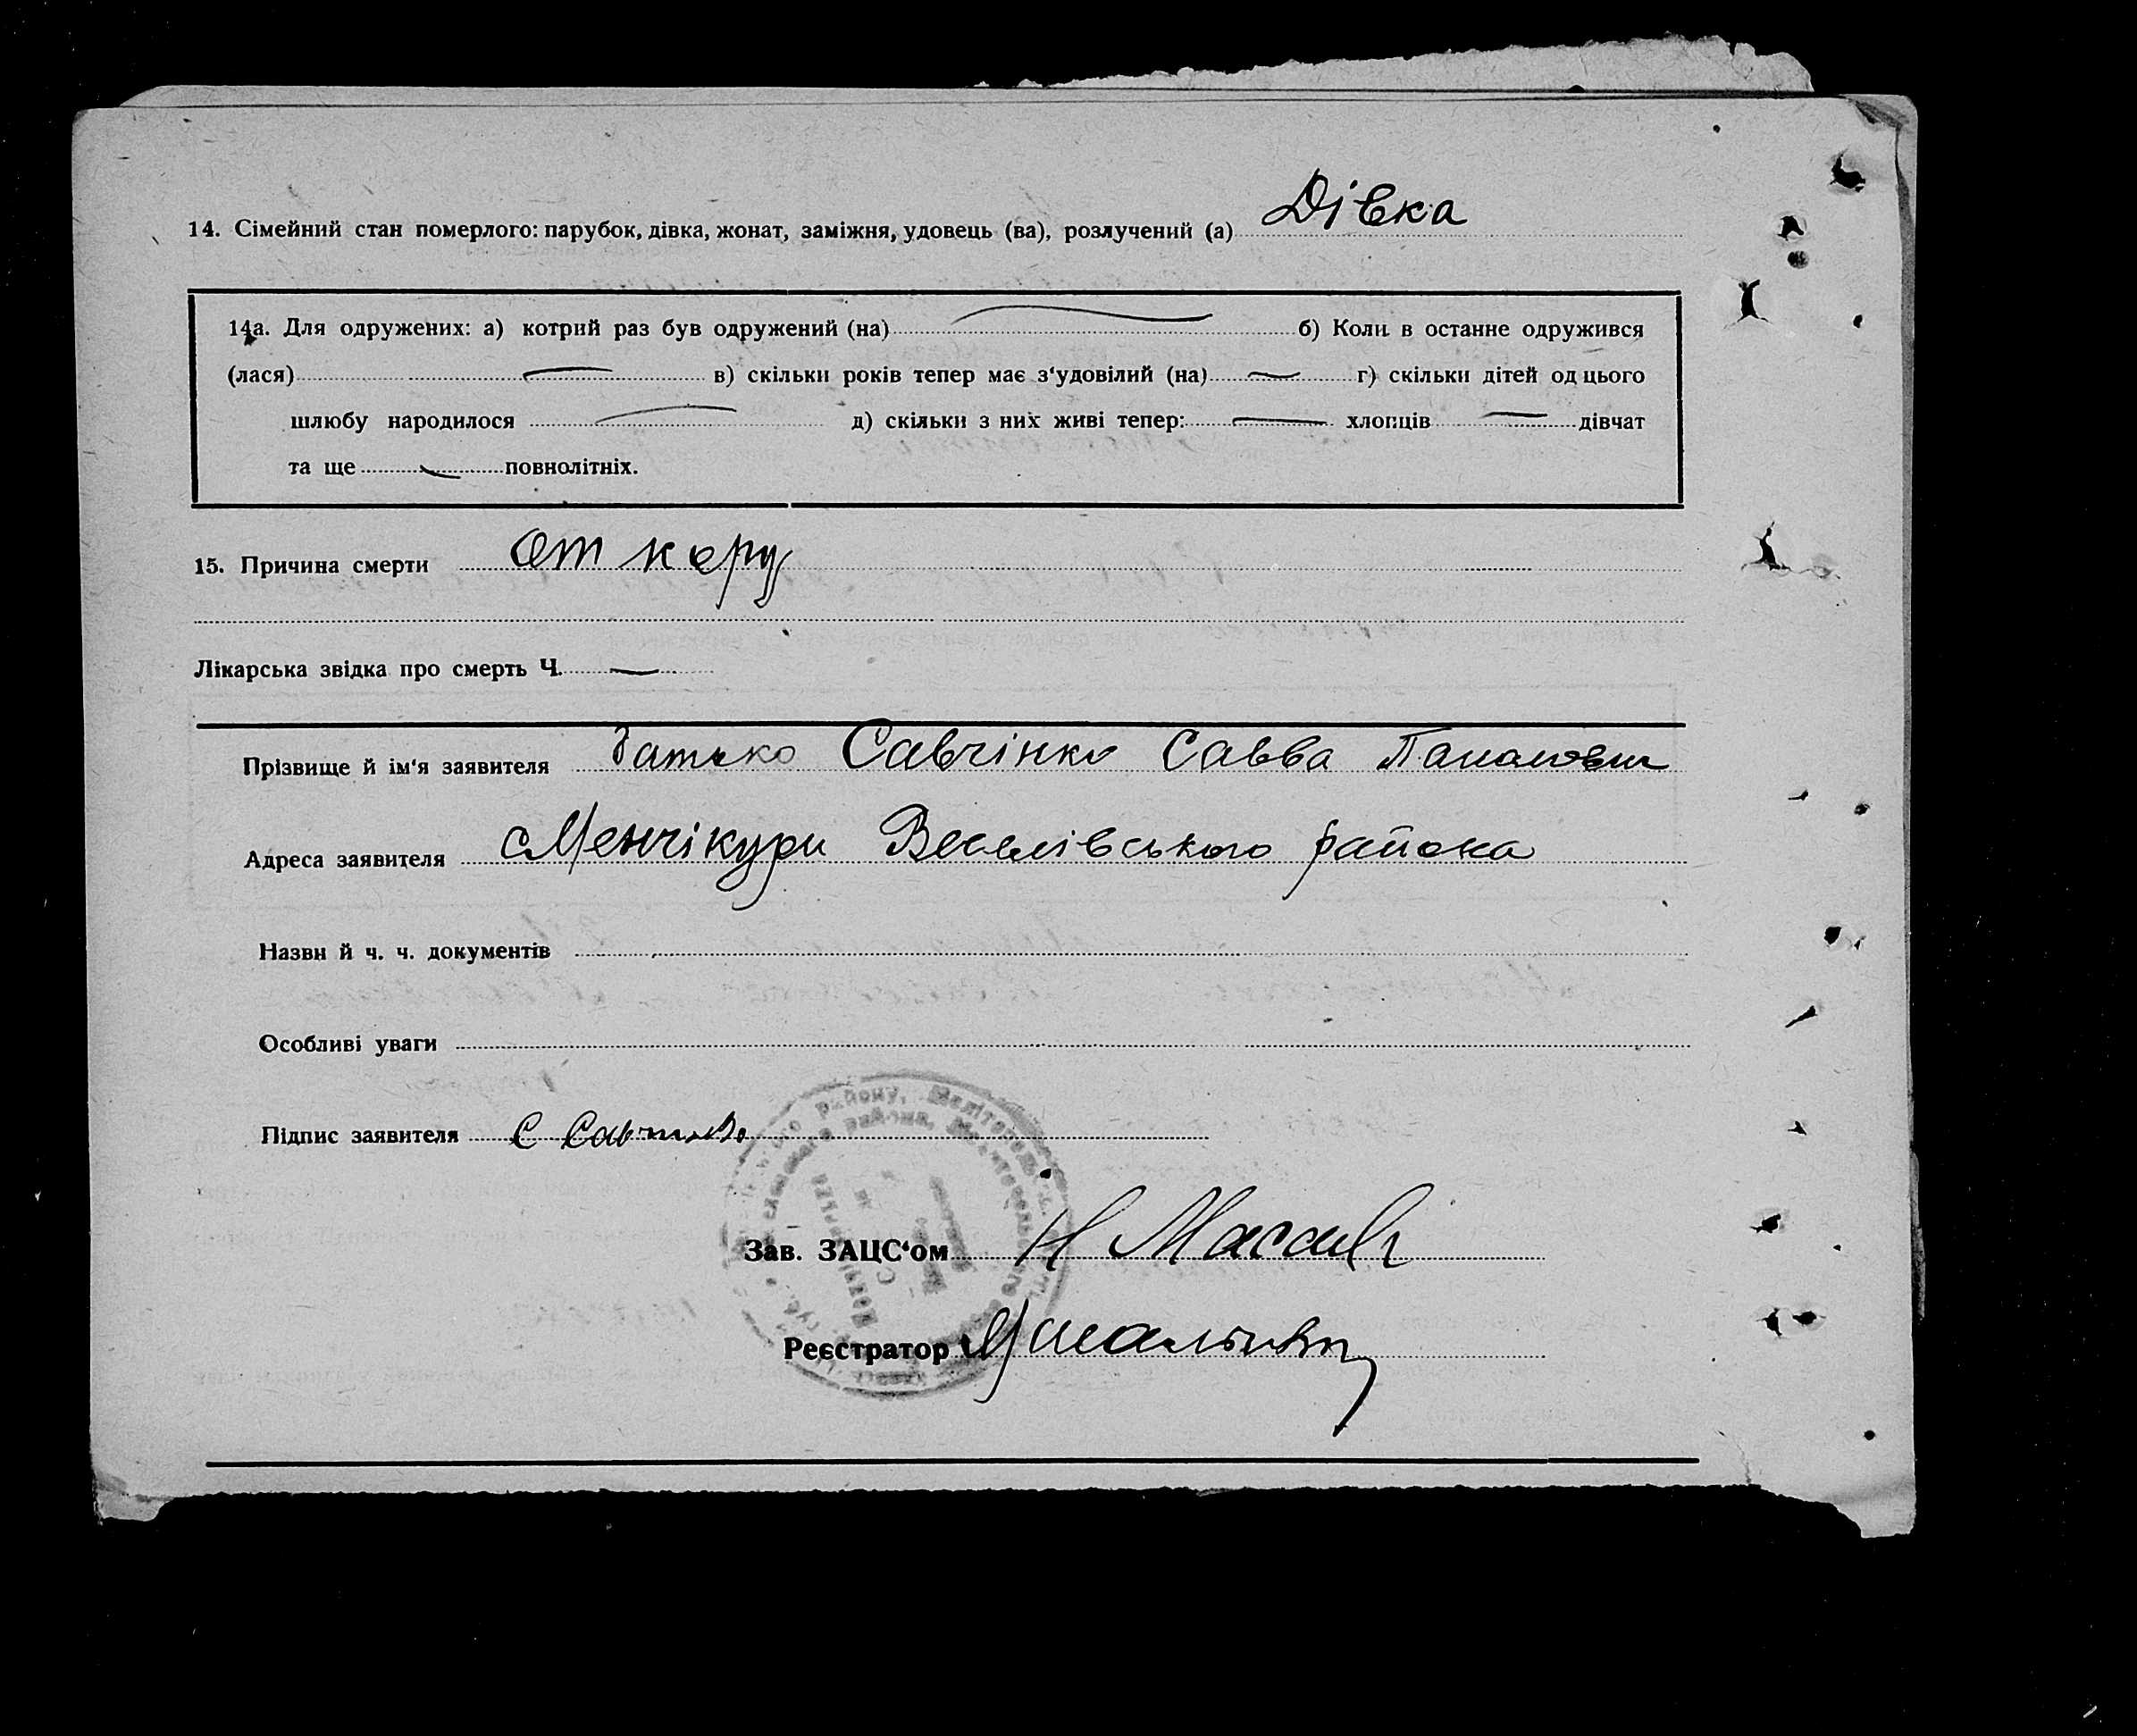 14. Сімейний стан померлого: парубок, дівка, жонат, заміжня, удовець (ва), розлучений (а) Дівка
14а. Для одружених: а) котрий раз був одружений (на) б) Коли в останне одружився
(лася) в) скільки років тепер має з‘удовілий (на) г) скільки дітей од цього
шлюбу народилося д) скільки з них живі тепер: хлопців дівчат
та ще повнолітніх.
15. Причина смерти От кору
Лікарська звідка про смерть Ч.
Прізвище й ім‘я заявителя батько Савчінко Савва
Адреса заявителя с Менчікури Веселівського района
Назви й ч. ч. документів
Особливі уваги
Підпис заявителя С
Зав. ЗАЦС‘ом Н
Реєстратор